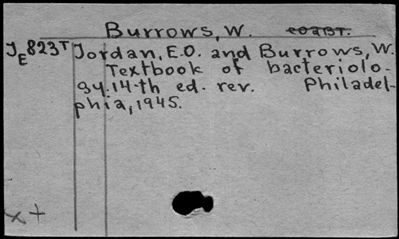 Burrows, W. соавт.
JE823T Jordan, E.O. and Burrows, W.
Textbook of bacteriolo-
gy. 14-th ed. rev. Philadel-
phia, 1945.
x+